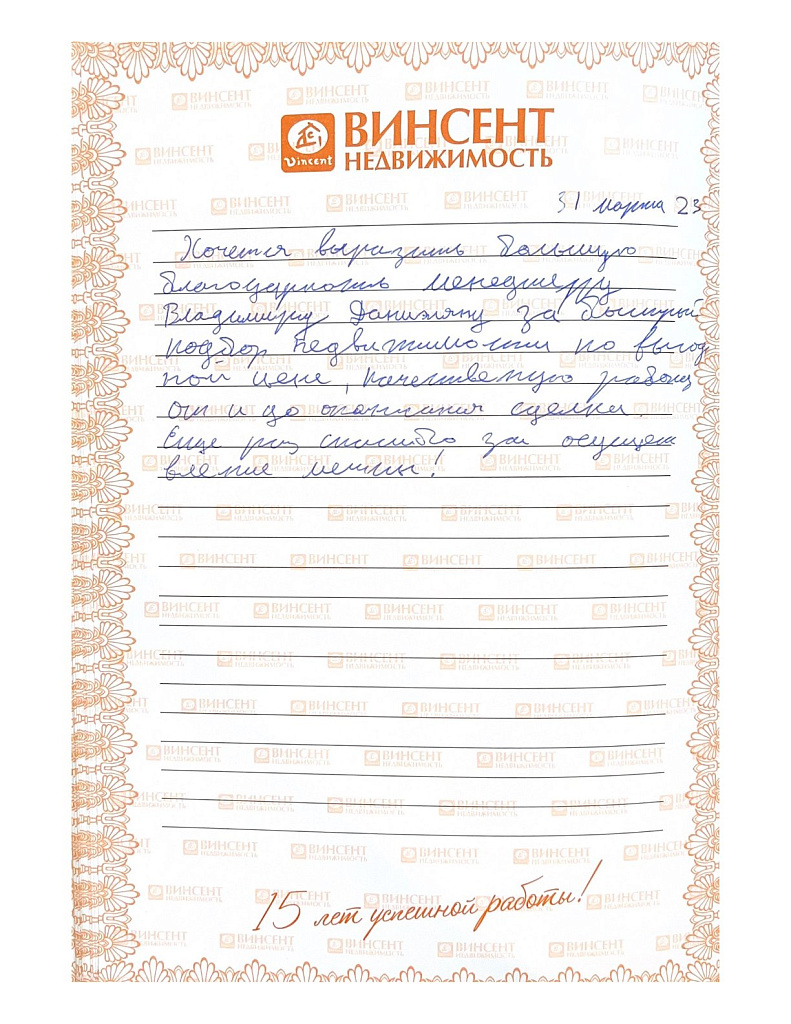 ВИНСЕНТ
НЕДВИЖИМОСТЬ
Vincent
31 марта 23
Хочется выразить большую
благодарность менеджеру
Владимиру Даниэляну за быстрый
подбор недвижимости по выгод
ной цене, качественную работу
от и до окончания сделки.
Еще раз спасибо за осущест
вление мечты!
15 лет успешной работы!